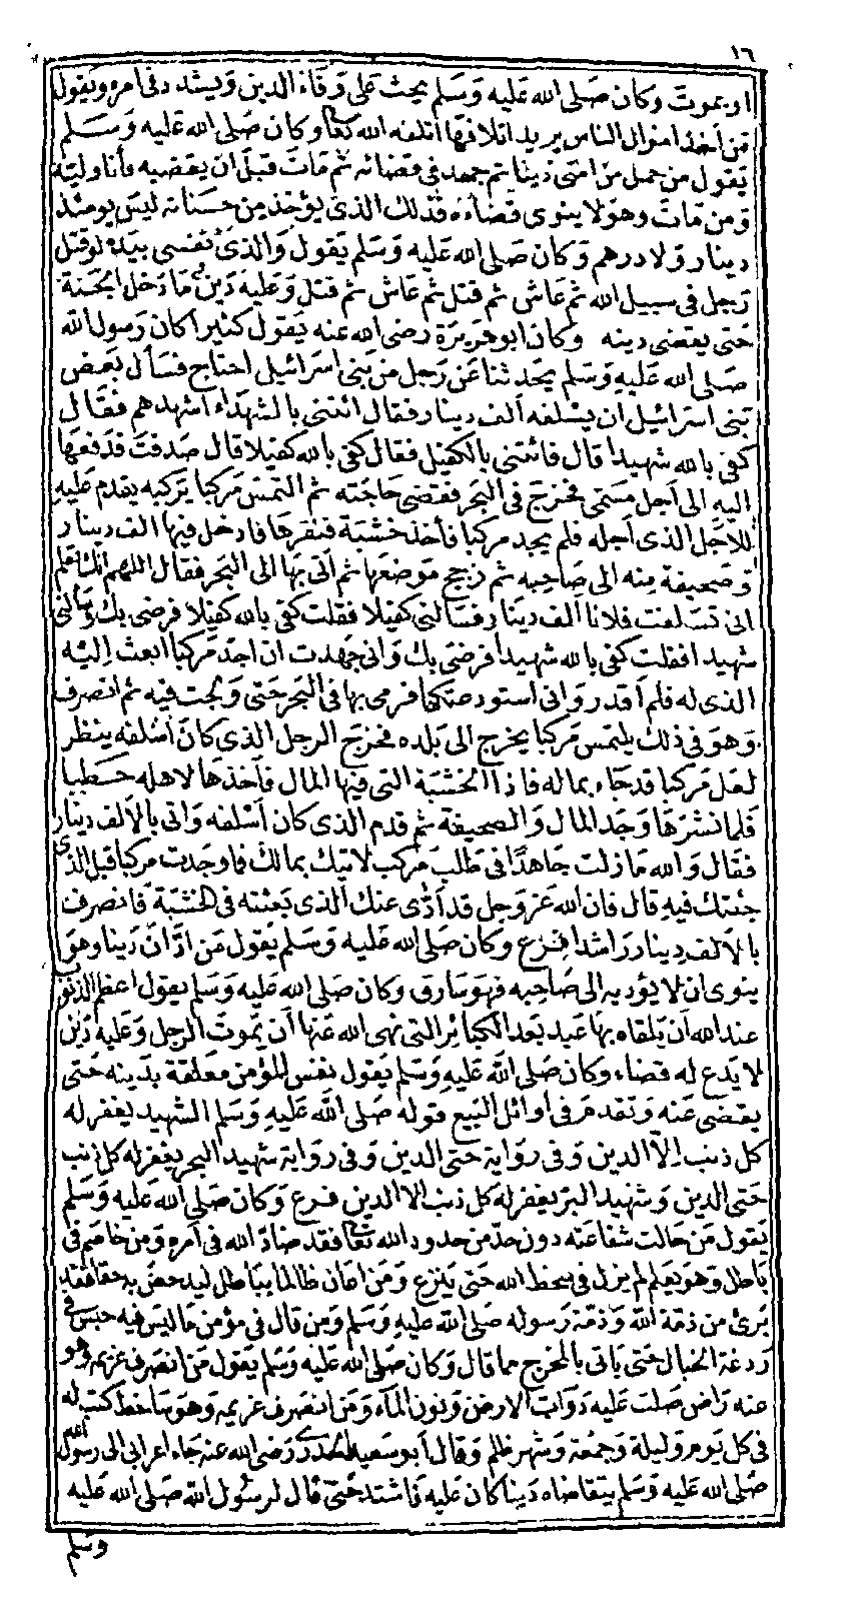 ١٦
او يموت وكان صَلى الله عَليه وَسَلم يحث عَلى وَفَاء الدين وَيشدد فى امره ويَقول
مَن اَخذ امَوال الناس يريد اتلافهَا اتلفه الله تعَا وكان صَلى الله عَليه وَسَلم
يَقول من حمل من امتى دَينا ثم جهد فى قضائه ثم مَاتَ قبلَ ان يقضيه فأنا وليه
وَمن مَاتَ وهوَ لا ينوى قَضَاءه فذلك الذى يؤخذ من حسَناته ليسَ يومئذ
دينار وَلا درهم وَكان صَلى الله عَليه وَسَلم يَقول وَالذى نفسى بيَده لو قتل
رَجل فى سبيل الله ثم عَاش ثم قتل ثم عَاش ثم قتل وَعليه دَين مَا دَخل الجنة
حَتى يقضى دينه وَكان ابو هرَيرَة رضى الله عنه يَقول كثيرا كان رَسول الله
صَلى الله عَليهِ وَسَلم يحَدثنا عَن رَجل من بَنى اسرَائيل احتاج فسَأل بَعض
بَنى اسرَائيل ان يسْلفه اَلف دينار فقال ائتنى بالشهدَاء اُشهدهم فقَال
كفى بالله شهيدا قال فائتنى بالكفيل فقال كفى بالله كفيلا قال صَدقتَ فدَفعهَا
اليه الى اَجل مسَمى فخرجَ فى البَحر فقضى حَاجَته ثم التمسَ مَركبا يَركبه يقدم عَليهِ
للاجَل الذى اَجله فلم يجد مركبا فأخذ خشبَة فنقرهَا فادخل فيها الف دينار
وَصَحيفة مِنه الى صَاحبه ثم زجج مَوضعهَا ثم اَتى بهَا الى البَحر فقال اللهم انك تعلم
انى تسَلفت فلانا اَلف دينَار فسَألنى كفيلا فقلت كفى بالله كفيلا فرضى بك وَسَالنى
شهيدا فقلت كفى بالله شهيدا فرضىَ بك وَانى جَهدت ان اجدَ مَركبا ابعث اِليَه
الذى له فلم اَقدر وَانى استودعتكها فرمى بها فى البَحر حَتى وَلجت فيه ثم انصَرف
وَهوَ فى ذلك يلتمس مَركبا يخرج الى بَلده فخرَجَ الرجل الذى كانَ اَسْلفه ينظر
لعَل مَركبا قد جَاء بماله فاذا الخشبَة التى فيهَا المال فأخذهَا لاهله حَطبا
فَلما نشرَهَا وَجَد المال وَالصَحيفة ثم قدم الذى كان اَسْلفه وَاتى بالاَلف دينار
فقال وَالله مَا زلت جَاهدًا فى طَلبَ مَركب لآتيك بمالك فما وَجَدت مركبا قبل الذى
جئتك فيه قال فان الله عَز وَجل قد اَدَّى عنك الَذى بَعثته فى الخشبَة فانصرف
بالاَلف دينار رَاشدا فرع وكان صَلى الله عَليه وَسَلم يَقول مَن ادَّانَ دَينا وهوَ
ينوى ان لا يؤديه الى صَاحبه فهوَ سَارق وَكان صَلى الله عَليه وَسَلم يقول اعظم الذنوب
عند الله اَن يَلقاه بهَا عَبد بَعد الكبَائر التى نهى الله عَنها اَن يَموتَ الرجل وَعَليه دَين
لا يَدع له قضاء وكان صَلى الله عَليهِ وَسَلم يَقول نفس المؤمن مَعلقة بدَينه حَتى
يقضى عَنه وَتقدمَ فى اوائل البَيع قوله صَلى الله عَليه وَسَلم الشهيد يغفر له
كل ذنب اِلا الدين وَفى روَاية حَتى الدين وَفى روَاية شهيد البحر يغفر له كل ذنب
حَتى الدين وَشهيد البرّ يغفر له كل ذنب الا الدين فرع وَكان صَلى الله عَليه وَسَلم
يَقول مَن حَالت شفاعَته دون حدّ من حدود الله تعَا فقد ضادّ الله فى اَمره وَمن خاصم فى
بَاطل وَهوَ يعَلم لم يزل فى سخط الله حَتى يَنزع وَمَن اعَان ظالما ببَاطل ليدحض به حَقا فقد
بَرئَ من ذمة الله وَذمّة رَسوله صَلى الله عَليهِ وَسَلم وَمن قال فى مؤمن مَا ليسَ فيه حبسَ فى
رَدغة الخبال حَتى ياتى بالمخرج مما قال وَكان صَلى الله عَليه وَسَلم يَقول مَن انصَرفَ غريمه وَهو
عنه رَاض صَلت عَليه دَوابّ الارض وَنون المآء وَمَن انصَرف غريمه وَهوَ سَاخط كتب له
فى كل يَومَ وَليلة وَجمعَة وَشهر ظلم وَقال اَبو سَعيد الخدرى رَضى الله عَنه جَاء اعرَابى الى رسول الله
صَلى الله عَليه وَسَلم يتقاضاه دَينا كان عَليهِ فاشتد حَتى قال لرسُول الله صَلى الله عَليه
وسَلم